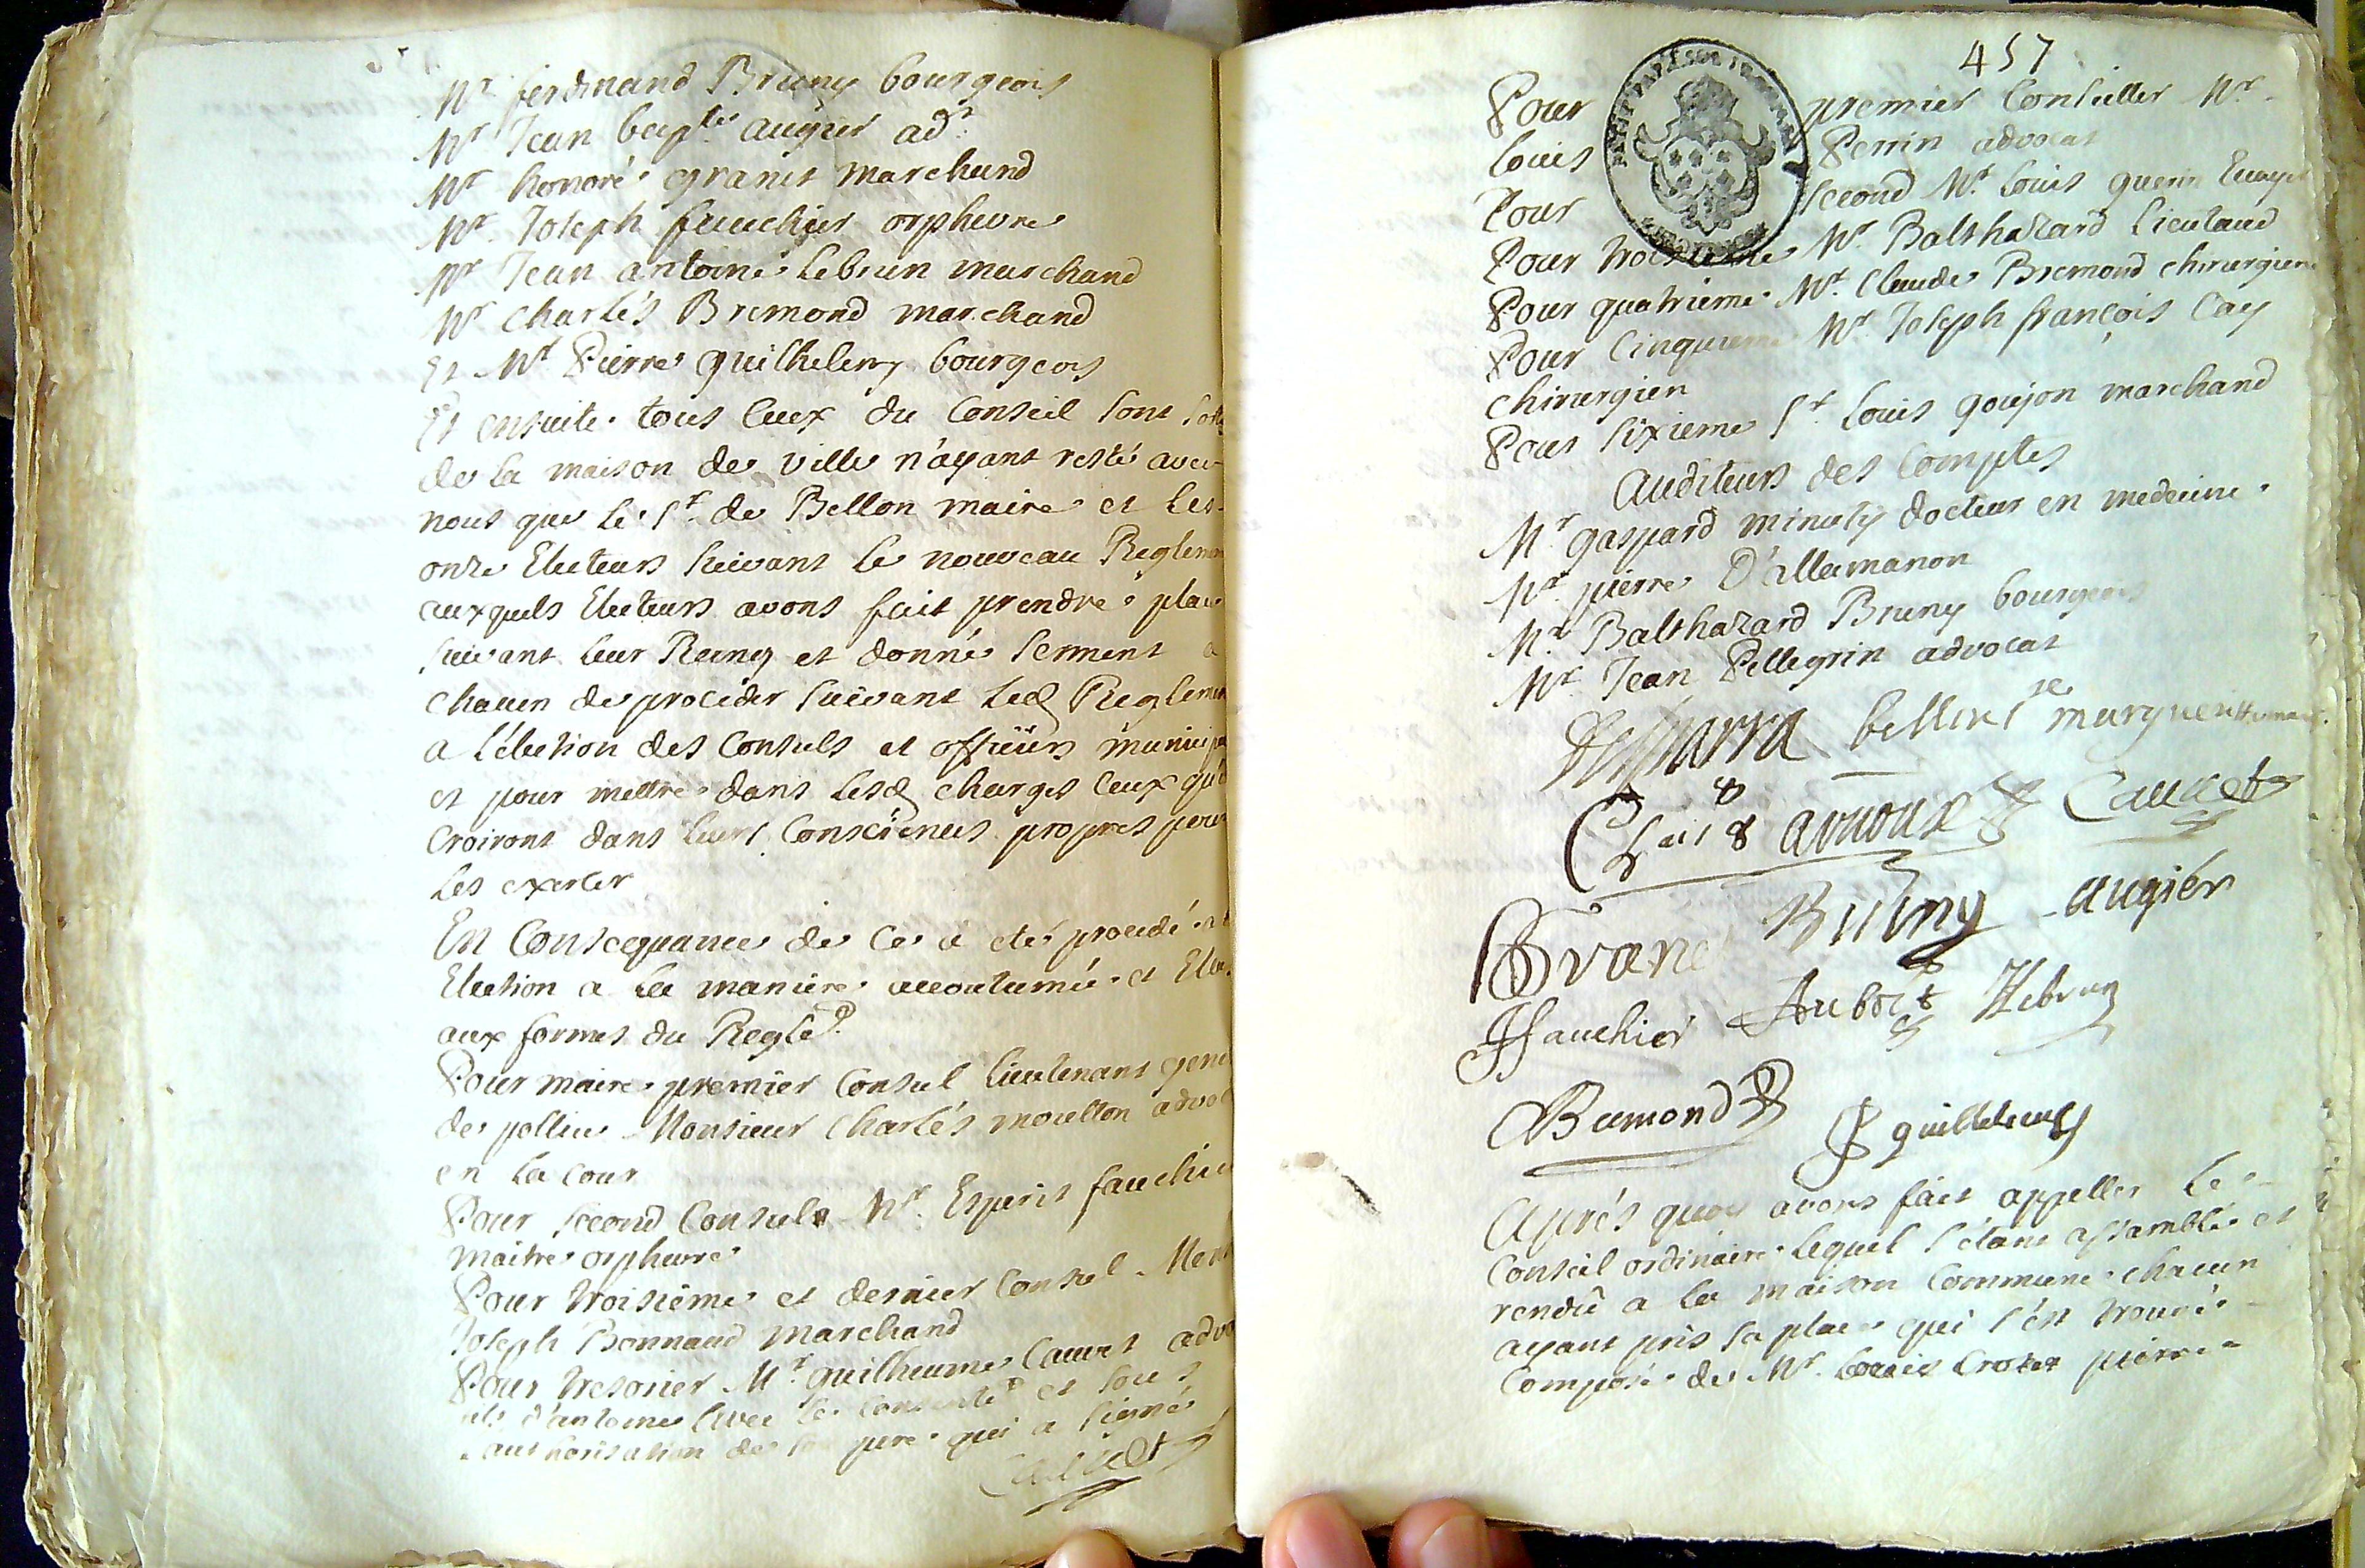 Mr ferdinand Bruny bourgeois
Mr Jean bapte augier adt
Mr honoré granet marchand
Mr Joseph fauchier orphevre
Mr Jean antoine Lebrun marchand
Mr Charles Bremond marchand
Et Mr Pierre guilhelemy bourgeois
Et ensuite tous Ceux du Conseil sont
de la maison de ville n'ayant resté avec
nous que le Sr de Bellon maire et les
onze Electeurs suivant le nouveau Reglem
auxquels Electeurs avons fait prendre place
suivant leur Rang et donné serment a
chacun de proceder suivant Led Reglem
a L'election des Consuls et officiers municip
et pour mettre dans Lesd charges Ceux qu'
Croiront dans leurs Consciences propres pour
Les exercer
En Consequance de Ce a eté procedé a
Election a la maniere accoutumée et
aux formes du Reglet
Pour maire premier Consul Lieutenant gene
de pollice Monsieur Charles moutton advo
en la Cour
Pour second Consul Mr Esperit fauchie
maitre orphevre
Pour troisieme et dernier Consul
Joseph Bonnaud marchand
Pour tresorier Mr guilheaume Cauvet advo
fils d'antoine avec le Consentt et sous
authorisation de son pere qui a signé
Cauvet
457
Pour premier Conseiller Mr
Louis Perrin advocat
Pour second Mr Louis guerin Ecuyer
Pour troisieme Mr Balthazard Lieutaud
Pour quatrieme Mr Claude Bremond chirurgien
Pour Cinquieme Mr Joseph françois Cay
chirurgien
Pour sixieme Sr Louis goujon marchand
Auditeurs des Comptes
Mr gaspard minuty docteur en medecine
Mr pierre D'allamanon
Mr Balthazard Bruny bourgeois
Mr Jean Pellegrin advocat
Desparra bellon
Lail arnoux Cauvet
Granet Bruny augier
Jfauchier Aubert Jlebrun
CBremond P guilhelemy
Aprés quoy avons fait appeller Le
Conseil ordinaire Lequel s'etant assamblé et
rendû a la maison Commune chacun
ayant pris sa place qui s'est trouvé
Composé de Mr Louis Crozet pierre